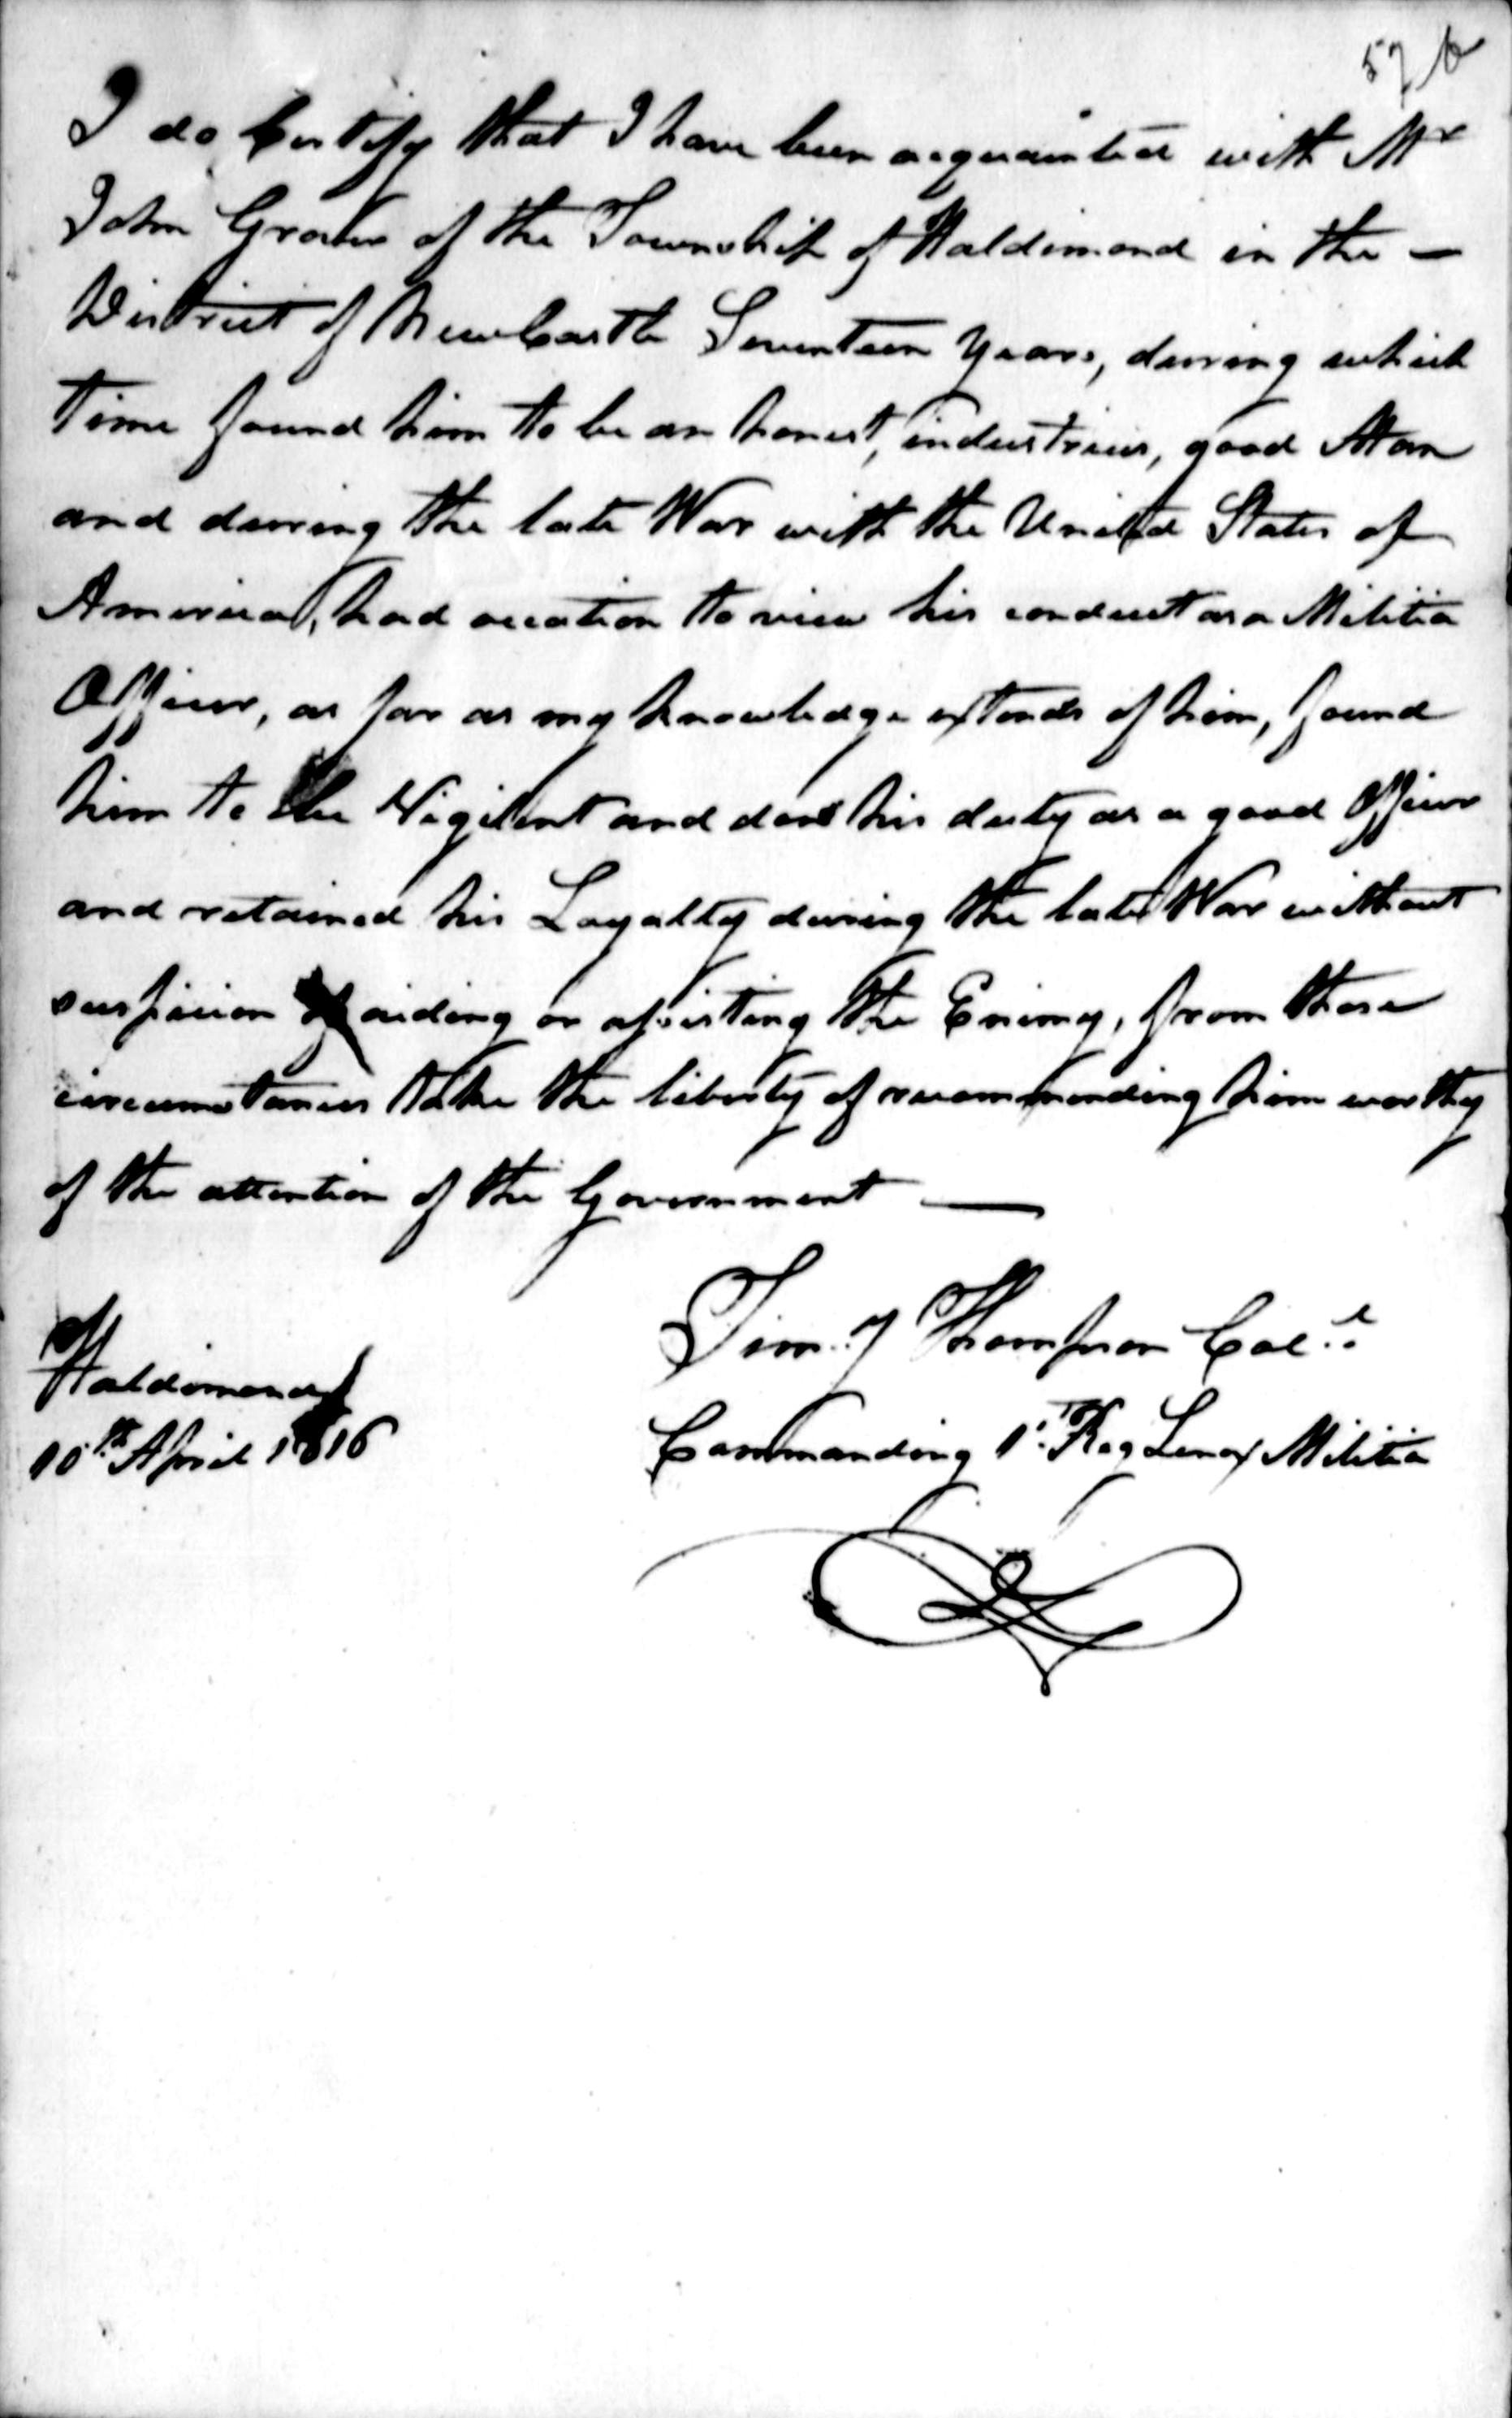 57 b
I do Certify that I have been acquainted with Mr
John Grover of the Township of Haldimand in the –
District of NewCastle Seventeen Years, during which
time found him to be an honest, industrius, good Man
and during the late War with the United States of
America, had occation to view his conduct as a Militia
Officer, as far as my knowledge extends of him, found
him to be Vigilent and done his duty as a good Officer
and retained his Loyalty during the late War without
suspicion of aiding or assisting the Enimy, from these
circumstances take the liberty of recommending him worthy
of the attention of the Government —
Tim.y Thompson Col.l
Commanding 1.t Reg Lenox Militia
Haldimand
10th April 1816